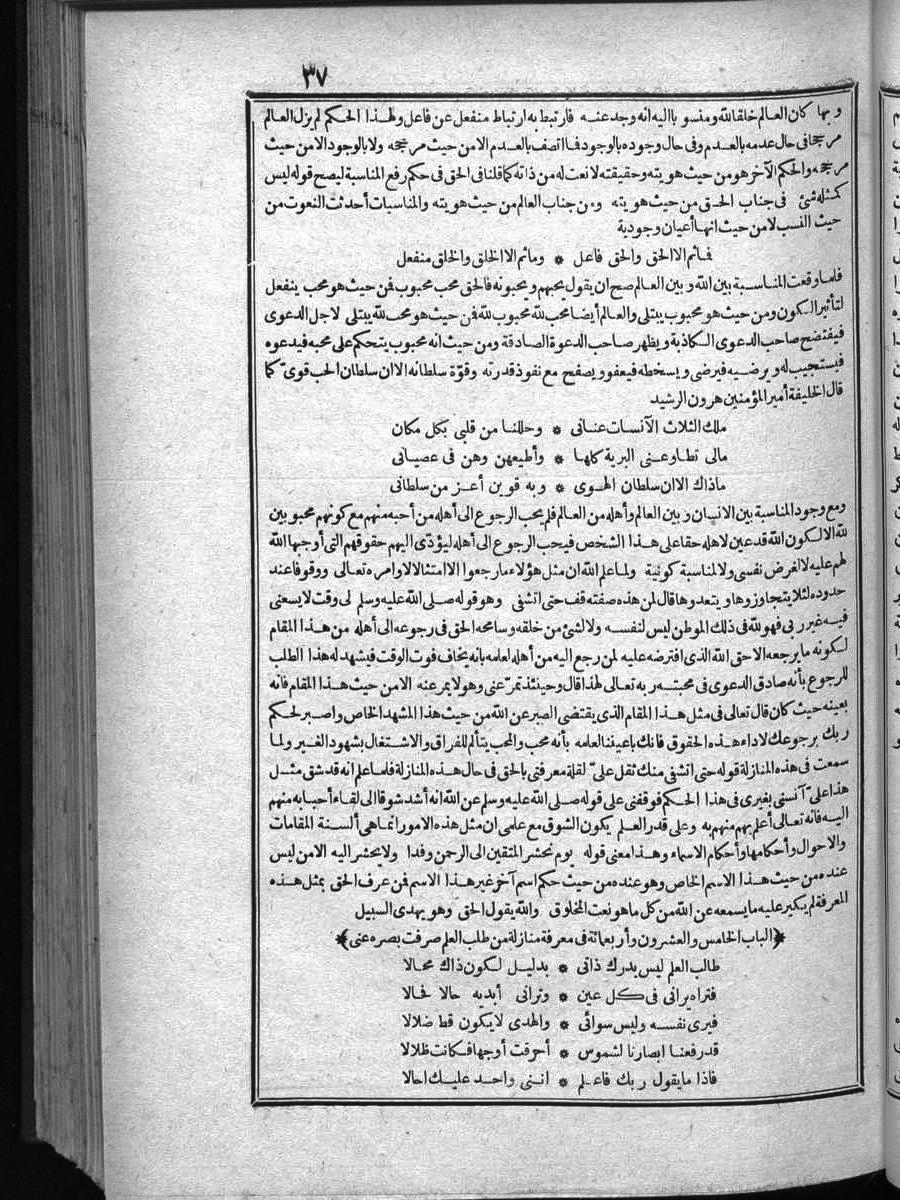 ٣٧
وبها كان العالم خلقا لله ومنسوبا اليه انه وجد عنه فارتبط به ارتباط منفعل عن فاعل ولهذا الحكم لم يزل العالم
مرجحا فى حال عدمه بالعدم وفى حال وجوده بالوجود فما اتصف بالعدم الا من حيث مرجحه ولا بالوجود الا من حيث
مرجحه والحكم الآخر هو من حيث هويته وحقيقته لا نعت له من ذاته كما قلنا فى الحق فى حكم رفع المناسبة ليصح قوله ليس
كمثله شئ فى جناب الحق من حيث هويته ومن جناب العالم من حيث هويته والمناسبات أحدثت النعوت من
حيث النسب لا من حيث انها أعيان وجودية
فما ثم الا الحق والحق فاعل * وما ثم الا الخلق والخلق منفعل
فلما وقعت المناسبة بين الله وبين العالم صح ان يقول يحبهم ويحبونه فالحق محب محبوب فمن حيث هو محب ينفعل
لتأثير الكون ومن حيث هو محبوب يبتلى والعالم أيضا محب لله محبوب لله فمن حيث هو محب لله يبتلى لاجل الدعوى
فيفتضح صاحب الدعوى الكاذبة ويظهر صاحب الدعوة الصادقة ومن حيث انه محبوب يتحكم على محبه فيدعوه
فيستجيب له ويرضيه فيرضى ويسخطه فيعفو ويصفح مع نفوذ قدرته وقوّة سلطانه الا ان سلطان الحب قوىّ كما
قال الخليفة أمير المؤمنين هرون الرشيد
ملك الثلاث الآنسات عنانى * وحللنا من قلبى بكل مكان
مالى تطاوعنى البرية كلها * وأطيعهن وهن فى عصيانى
ماذاك الا ان سلطان الهوى * وبه قوين أعز من سلطانى
ومع وجود المناسبة بين الانسان وبين العالم وأهله من العالم فلم يحب الرجوع الى أهله من أحبه منهم مع كونهم محبوبين
لله الا لكون الله قد عين لاهله حقا على هذا الشخص فيحب الرجوع الى أهله ليؤدّى اليهم حقوقهم التى أوجبها الله
لهم عليه لا لغرض نفسى ولا لمناسبة كونية ولما علم الله ان مثل هؤلاء ما رجعوا الا امتثالا لاوامره تعالى ووقوفا عند
حدوده لئلا يتجاوزوها ويتعدوها قال لمن هذه صفته قف حتى اتشفى وهو قوله صلى الله عليه وسلم لى وقت لا يسعنى
فيه غير ربى فهو لله فى ذلك الموطن ليس لنفسه ولا لشئ من خلقه وسامحه الحق فى رجوعه الى أهله من هذا المقام
لكونه ما يرجعه الا حق الله الذى افترضه عليه لمن رجع اليه من أهله لعامه بانه يخاف فوت الوقت فيشهد له هذا الطلب
للرجوع بأنه صادق الدعوى فى محبته ربه تعالى لهذا قال وحينئذ تمرّ عنى وهو لا يمر عنه الا من حيث هذا المقام فانه
بعينه حيث كان قال تعالى فى مثل هذا المقام الذى يقتضى الصبر عن الله من حيث هذا المشهد الخاص واصبر لحكم
ربك برجوعك لاداء هذه الحقوق فانك باعيننا لعامه بأنه محب والمحب يتألم للفراق والاشتغال بشهود الغير ولما
سمعت فى هذه المنازلة قوله حتى اتشفى منك ثقل علىّ لقلة معرفتى بالحق فى حال هذه المنازلة فلما علم انه قد شق مثل
هذا علىّ آنسنى بغيرى فى هذا الحكم فوقفنى على قوله صلى الله عليه وسلم عن الله انه أشد شوقا الى لقاء أحبابه منهم
اليه فانه تعالى أعلم بهم منهم به وعلى قدر العلم يكون الشوق مع علمى ان مثل هذه الامور انما هى ألسنة المقامات
والاحوال وأحكامها وأحكام الاسماء وهذا معنى قوله يوم نحشر المتقين الى الرحمن وفدا ولا يحشر اليه الا من ليس
عنده من حيث هذا الاسم الخاص وهو عنده من حيث حكم اسم آخر غير هذا الاسم فمن عرف الحق بمثل هذه
المعرفة لم يكبر عليه ما يسمعه عن الله من كل ما هو نعت المخلوق والله يقول الحق وهو يهدى السبيل
﴿الباب الخامس والعشرون وأربعمائة فى معرفة منازلة من طلب العلم صرفت بصره عنى﴾
طالب العلم ليس يدرك ذاتى * بدليل لكون ذاك محالا
فتراه يرانى فى كل عين * وترانى أبديه حالا فحالا
فيرى نفسه وليس سوائى * والهدى لا يكون قط ضلالا
قد رفعنا ابصارنا لشموس * أحرقت أوجها فكانت ظلالا
فاذا ما يقول ربك فاعلم * اننى واحد عليك احالا